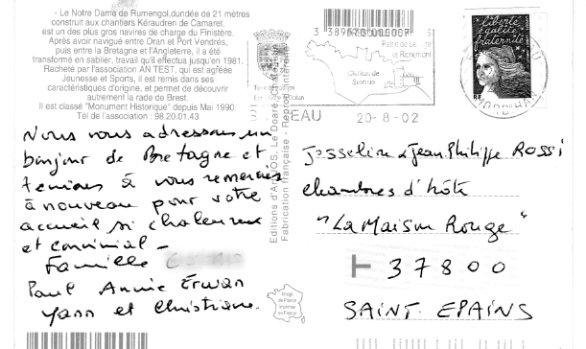 - Le Notre Dame de Rumengol,dundée de 21 mètres
construit aux chantiers Kéraudren de Camaret,
est un des plus gros navires de charge du Finistère.
Après avoir navigué entre Oran et Port Vendrés,
puis entre la Bretagne et l'Angleterre, il a été
transformé en sablier, travail qu'il effectua jusqu'en 1981.
Racheté par l'association AN TEST, qui est agréée
Jeunesse et Sports, il est remis dans ses
caractéristiques d'origine, et permet de découvrir
autrement la rade de Brest.
Il est classé "Monument Historique" depuis Mai 1990.
Tél de l'association : 98.20.01.43
Nous vous adressons un
bonjour de Bretagne et
tenions à vous remercier
à nouveau pour votre
accueil si chaleureux
et convivial -
Famille
Paul Annie Erwan
Yann et Christiane.
Editions d'Art JOS, Le Doaré, Château
Fabrication française - Reproduction interdite
Château de
Suscinio
EAU
20-8-02
liberté
égalité
fraternité
RF
MORBIHAN
Josseline & Jean Philippe ROSSI
chambres d'hôte
"La Maison Rouge"
37800
SAINT. EPAINS
Image
de France
Imprimée
en France